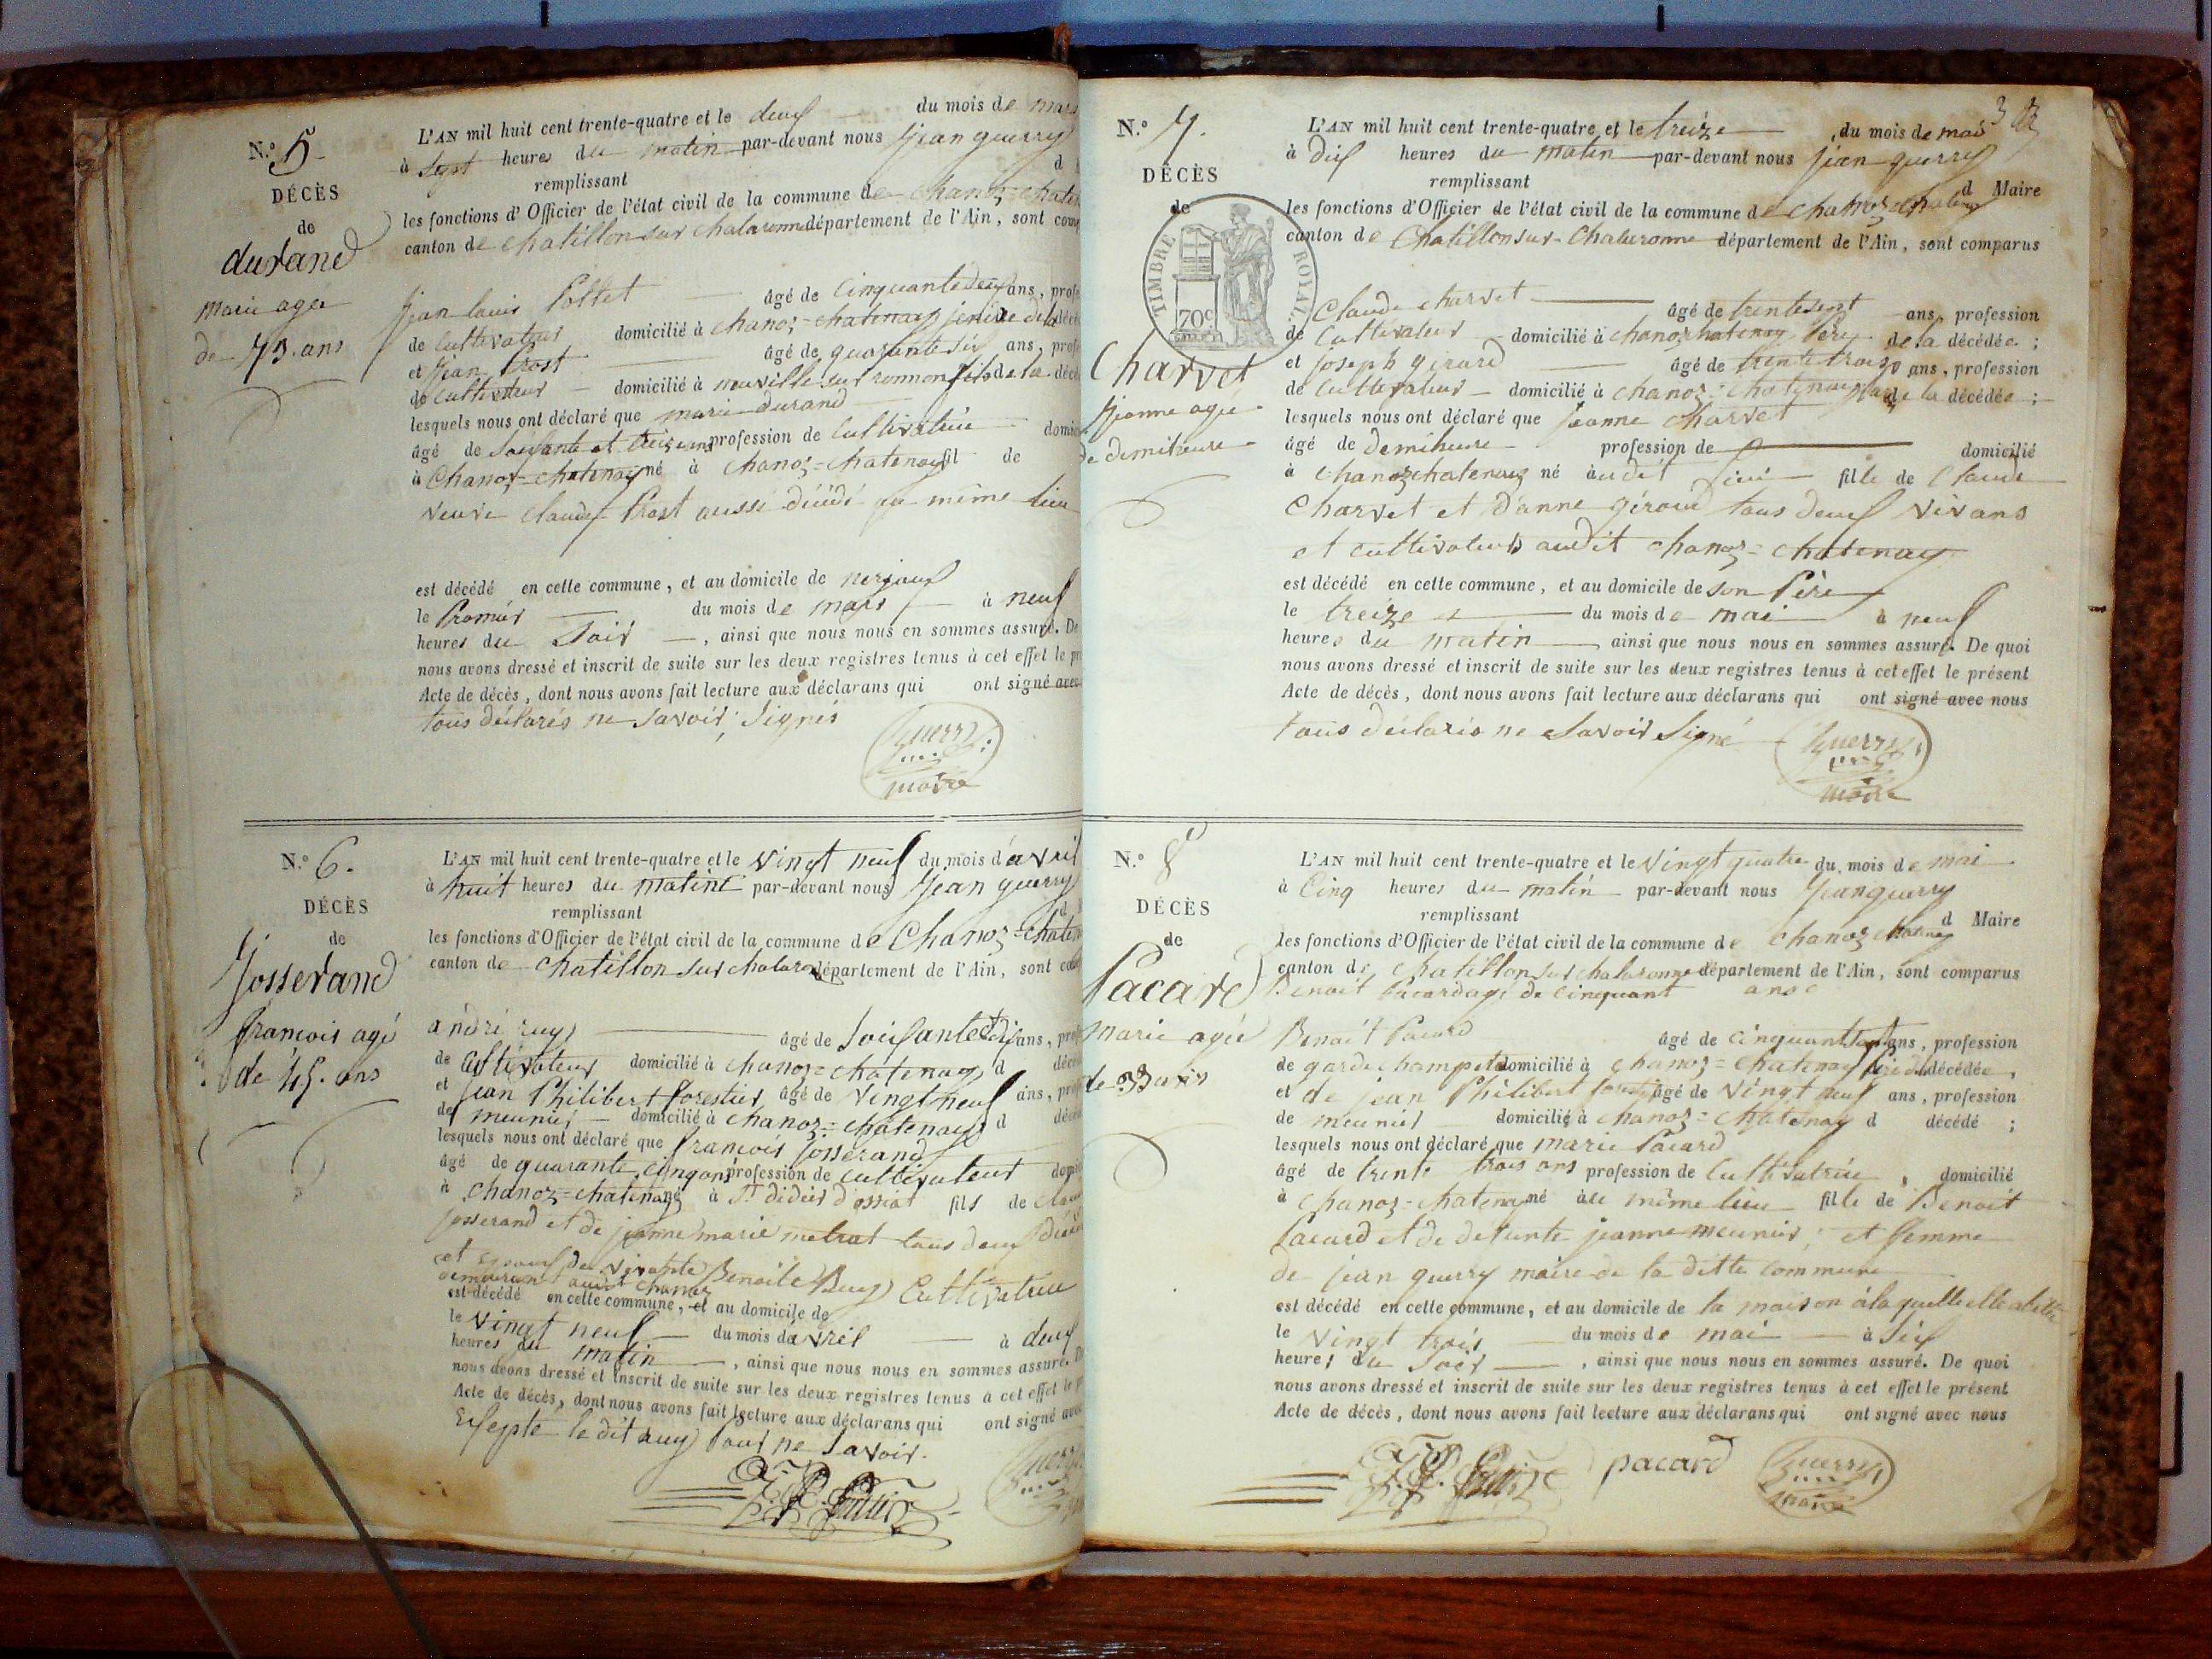 N.º 5
DÉCÈS
de
durand
marie agée
de 73. ans
L'AN mil huit cent trente-quatre et le deux du mois de mars
à sept heures du matin par-devant nous jean guerry
remplissant
les fonctions d'Officier de l'état civil de la commune de chanoz=chaten
canton de chatillon sur chalaronne département de l'Ain, sont com
jean louis Pottet âgé de cinquante deux ans, prof
de cultivateur domicilié à chanoz=chatenay
et jean Prost âgé de quarante six ans, prof
de cultivateur domicilié à neuville sur renon fils de la déc
lesquels nous ont déclaré que marie durand
âgé de soixante et treize ans profession de cultivatrice domic
à Chanoz=chatenay né à chanoz=chatenay fil de
veuve claude Prost aussi décédé au même lieu
est décédé en cette commune, et au domicile de
le Premier du mois de mars à neuf
heures du soir, ainsi que nous nous en sommes assuré. De
nous avons dressé et inscrit de suite sur les deux registres tenus à cet effet le pr
Acte de décès, dont nous avons fait lecture aux déclarans qui ont signé avec
tous déclarés ne savoir signés
Guerry
maire
N.º 6.
DÉCÈS
de
Josserand
françois agé
de 45. ans
L'AN mil huit cent trente-quatre et le vingt neuf du mois d'avril
à huit heures du matin par-devant nous jean guerry
remplissant
les fonctions d'Officier de l'état civil de la commune de Chanoz=chaten
canton de chatillon sur chalaron département de l'Ain, sont com
andré ruy âgé de soixante dix ans, prof
de cultivateur domicilié à chanoz=chatenay d décé
et jean Philibert forestier âgé de vingt neuf ans, prof
de meunier domicilié à chanoz=chatenay d décé
lesquels nous ont déclaré que françois josserand
âgé de quarante cinq ans profession de cultivateur domi
à chanoz=chatenay né à St didier d'ossiat fils de clau
josserand et de jeanne marie metrat tous deux décé
et epoux de vivante Benoite Ruy Cultivatrice
demeurant audit chanoz
est décédé en cette commune, et au domicile de
le vingt neuf du mois d'avril à deux
heures du matin, ainsi que nous nous en sommes assuré. D
nous avons dressé et inscrit de suite sur les deux registres tenus à cet effet le p
Acte de décès, dont nous avons fait lecture aux déclarans qui ont signé avec
Exsepté le dit ruy Pour ne savoir.
Guerry
3
N.º 7.
DÉCÈS
de
TIMBRE ROYAL
70c
Charvet
jeanne agée
de demiheure
L'AN mil huit cent trente-quatre et le treize du mois de mai
à dix heures du matin par-devant nous jean guerry
remplissant d Maire
les fonctions d'Officier de l'état civil de la commune de chanoz chatenay
canton de Chatillon sur-Chalaronne département de l'Ain, sont comparus
Claude charvet âgé de trente sept ans, profession
de cultivateur domicilié à chanoz chatenay Père de la décédée ;
et joseph girard âgé de trente trois ans, profession
de cultivateur domicilié à chanoz=chatenay de la décédée ;
lesquels nous ont déclaré que jeanne charvet
âgé de demiheure profession de domicilié
à chanoz chatenay né audit fille de Claude
Charvet et d'anne géroud tous deux vivans
et cultivateurs audit chanoz=chatenay
est décédé en cette commune, et au domicile de son Père
le treize du mois de mai à neuf
heures du matin ainsi que nous nous en sommes assuré. De quoi
nous avons dressé et inscrit de suite sur les deux registres tenus à cet effet le présent
Acte de décès, dont nous avons fait lecture aux déclarans qui ont signé avec nous
tous déclarés ne savoir signé
Guerry
maire
N.º 8
DÉCÈS
de
Pacard
marie agée
de 33 ans
L'AN mil huit cent trente-quatre et le vingt quatre du mois de mai
à cinq heures du matin par-devant nous jean guerry
remplissant d Maire
les fonctions d'Officier de l'état civil de la commune de chanoz chatenay
canton de chatillon sur chalaronne département de l'Ain, sont comparus
Benoit Pacard agé de cinquant ans
Benoit Pacard âgé de cinquant sept ans, profession
de garde champetre domicilié à chanoz=chatenay Père de la décédée,
et de jean Philibert forestier âgé de vingt neuf ans, profession
de meunier domicilié à chanoz=chatenay d décédé ;
lesquels nous ont déclaré que marie Pacard
âgé de trente trois ans profession de cultivatrice, domicilié
à chanoz-chatenay né au même lieu fille de Benoit
Pacard et de défunte jeanne meunier ; et femme
de jean guerry maire de la ditte commune
est décédé en cette commune, et au domicile de la maison à la quelle elle abitte
le vingt trois du mois de mai à six
heures du soir, ainsi que nous nous en sommes assuré. De quoi
nous avons dressé et inscrit de suite sur les deux registres tenus à cet effet le présent
Acte de décès, dont nous avons fait lecture aux déclarans qui ont signé avec nous
pacard
Guerry
maire